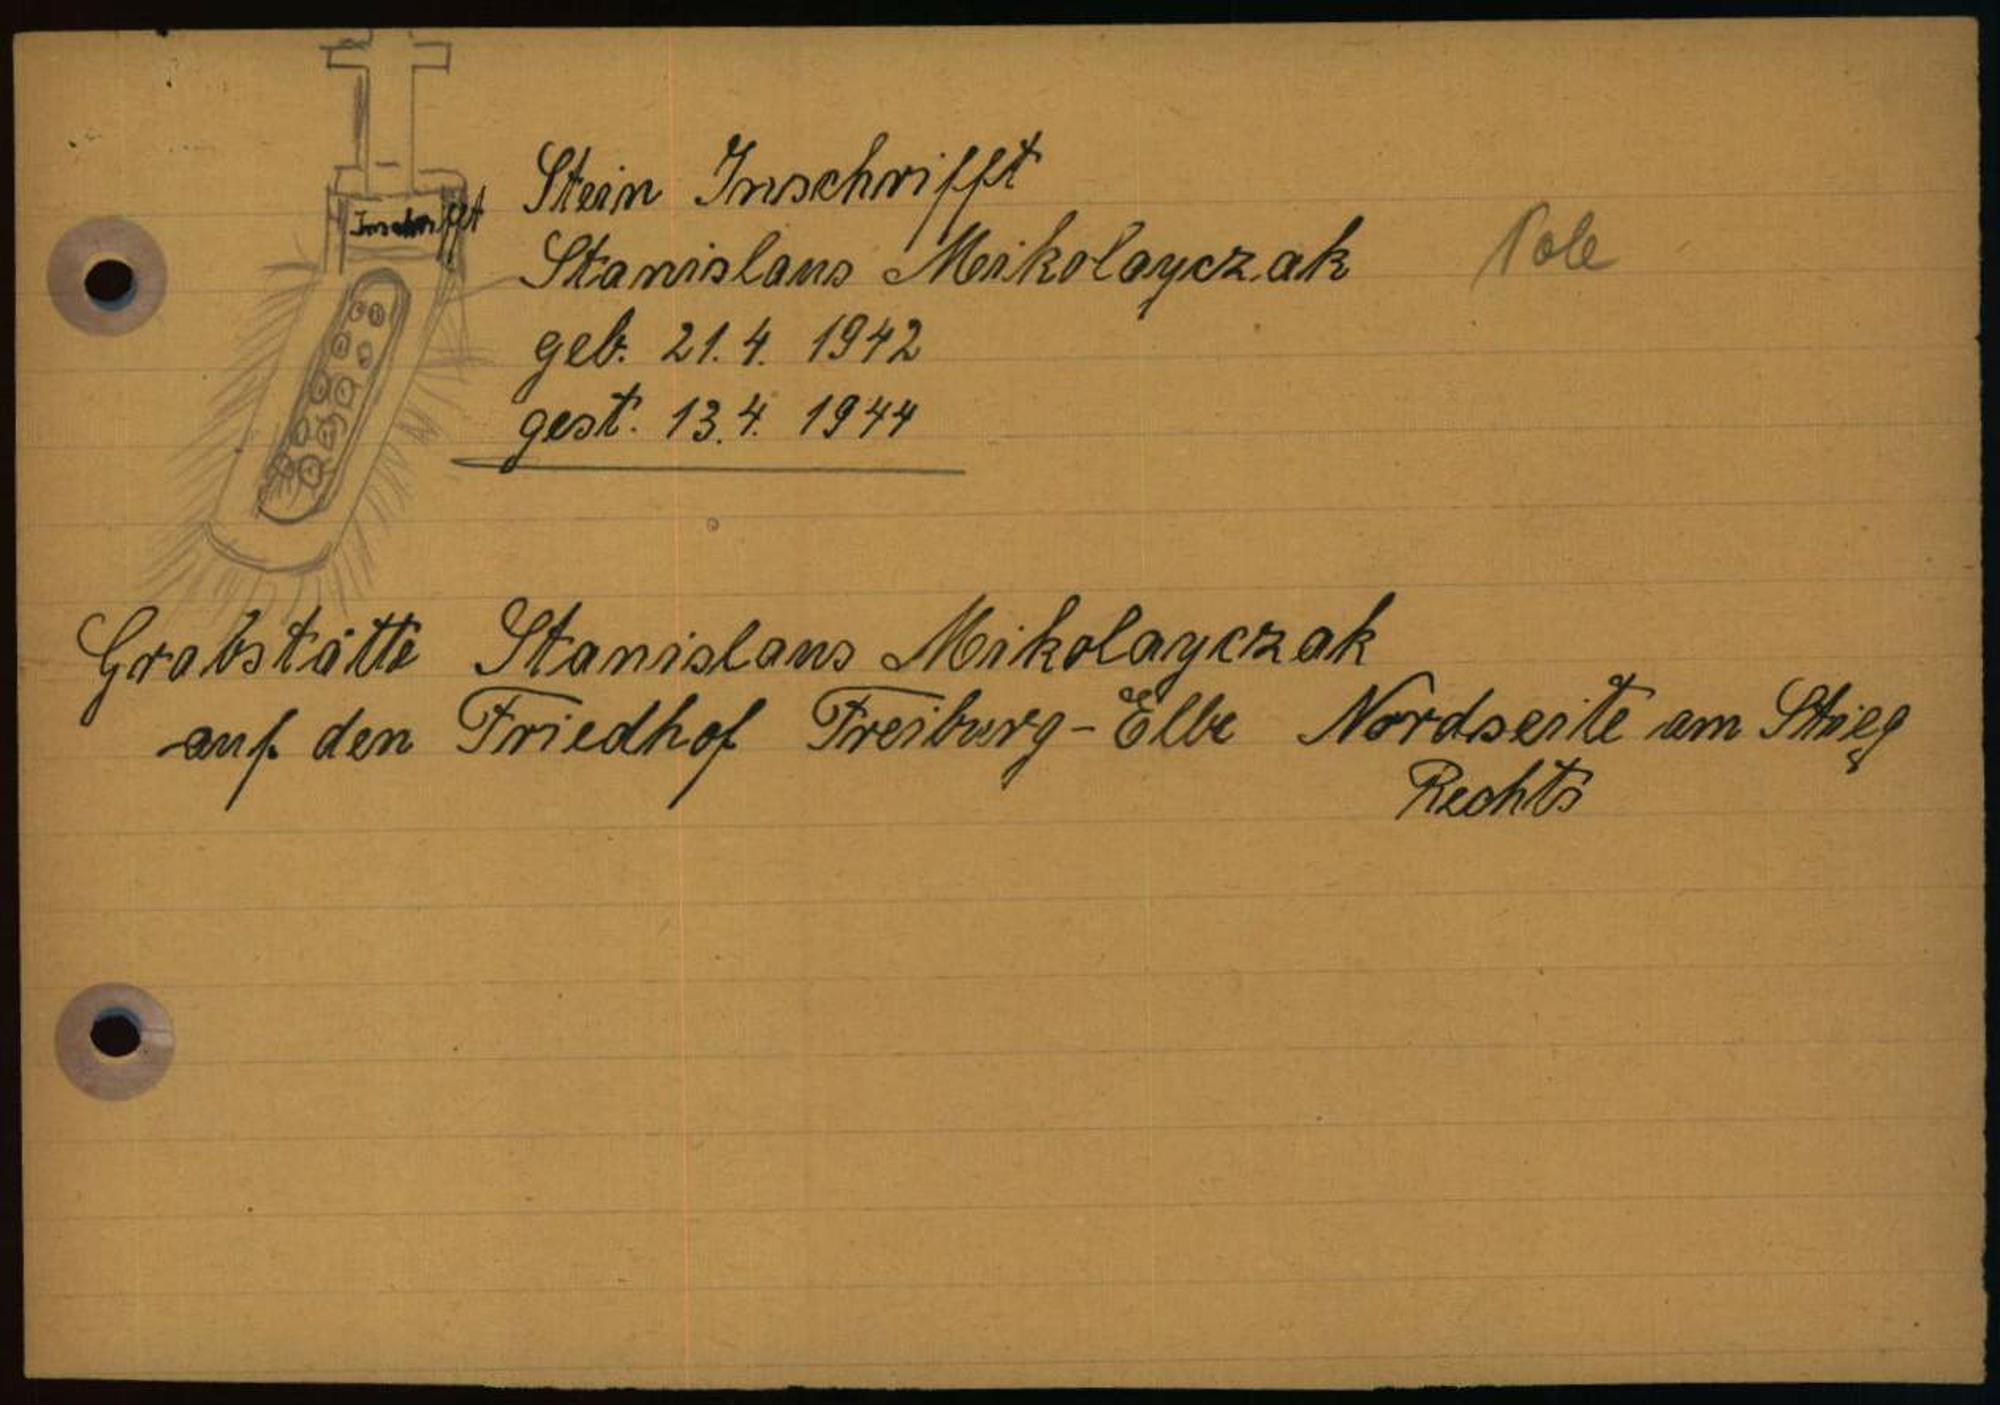 Inschrifft
Stein Inschrifft
Stanislaus Mikolayczak Pole
geb. 21. 4. 1942
gest. 13. 4. 1944
Grabstätte Stanislaus Mikolayczak
auf den Friedhof Freiburg-Elbe Nordseite am Stieg
Rechts